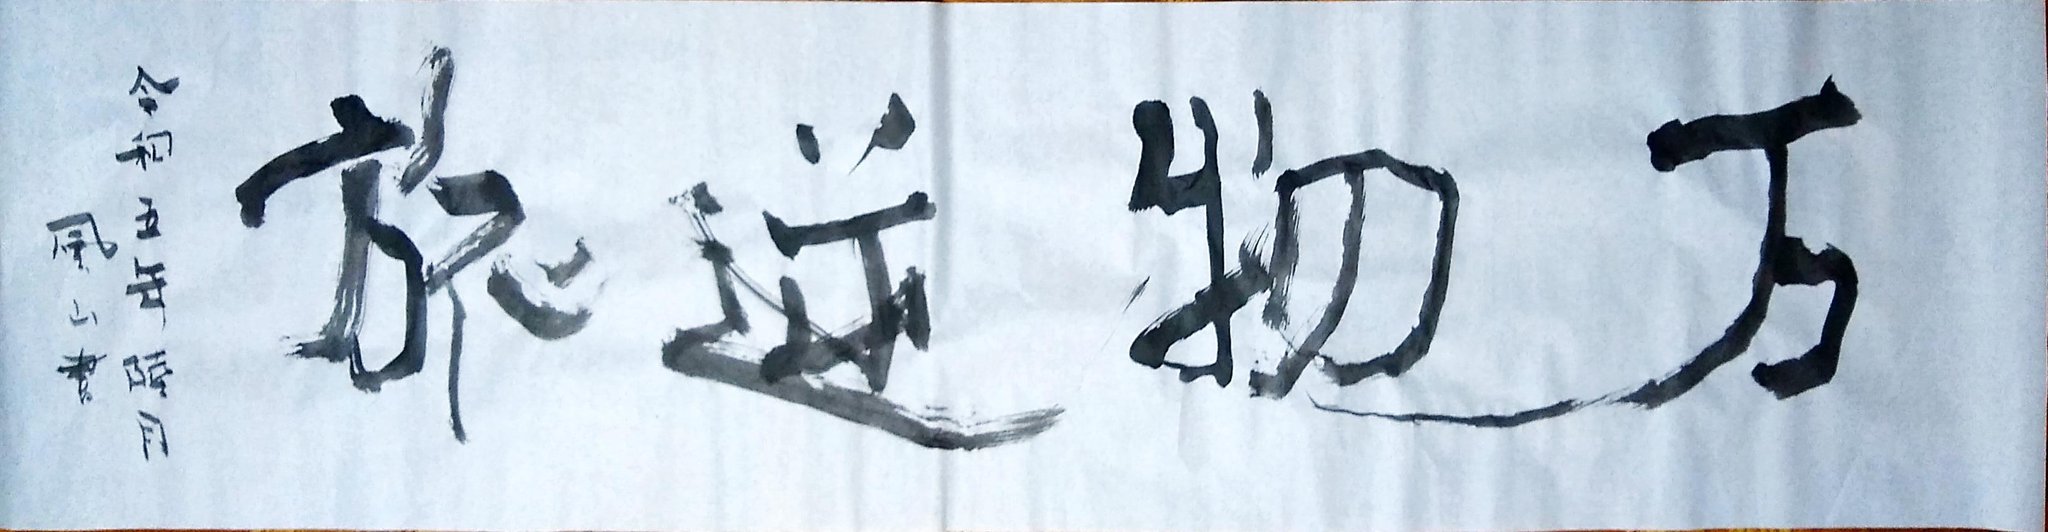 万物逆旅
令和五年陸月
風山書